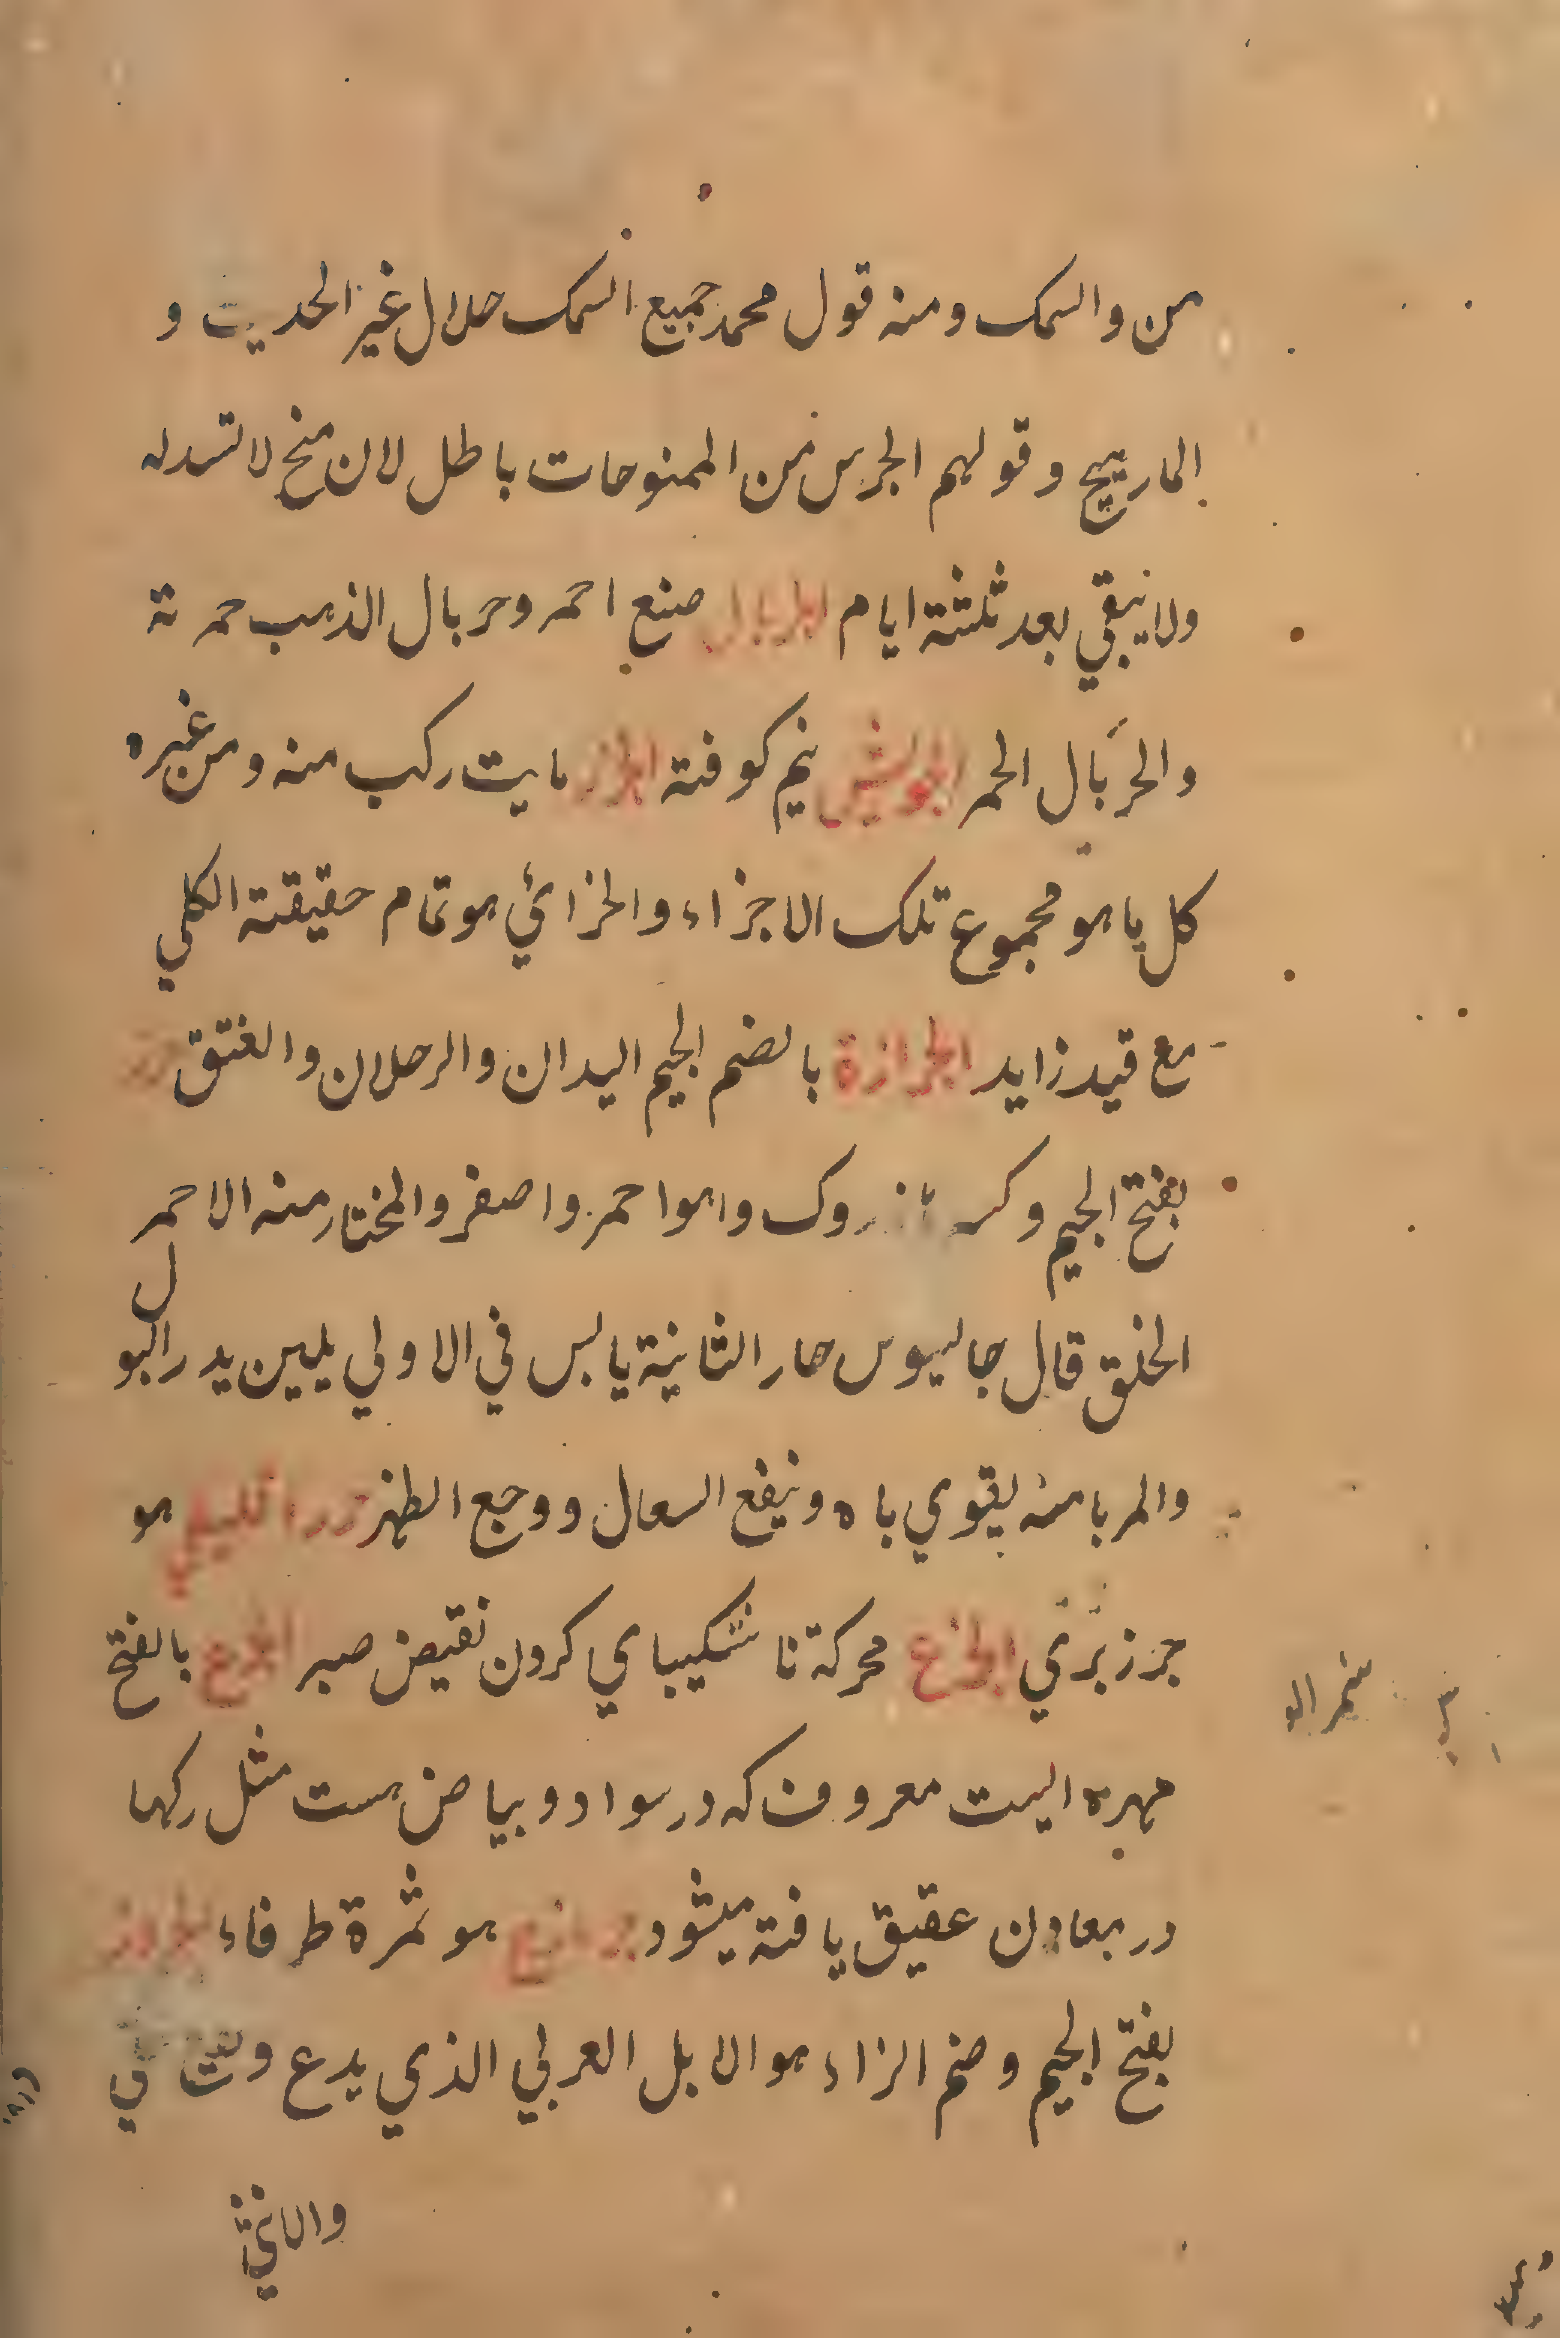 من والسمك ومنه قول محمد جميع السمك حلال غير الحديث و
المارهيج وقولهم الجرس من الممنوحات باطل لان منح لا تسدله
ولا يبقي بعد ثلثة ايام الجربال صنع احمر وجربال الذهب حمرته
والجربال الحمر الجوشش نيم كوفته الجزء مايت ركب منه ومن غيره
كل ما هو مجموع تلك الاجزاء والجزائي هو تمام حقيقة الكلي
مع قيد زايد الجزازة بالضم الجيم اليدان والرجلان والعنق جزر
بفتح الجيم وكسر وهو احمر واصفر والمختار منه الاحمر
الخلق قال جالينوس حار الثانية يابس في الاولي يلين يدر البول
والمربا منه يقوي باه وينفع السعال ووجع الظهر جزر هو
جزر بري الجزع محركة نا شكيباي كردن نقيض صبر الجزع بالفتح
مهره ايست معروف كه در سواد و بياض هست مثل ركها
در معادن عقيق يافته ميشود هو ثمرة طرفاء الجزور
بفتح الجيم وضم الزاء هو الابل العربي الذي يدع
والانثي